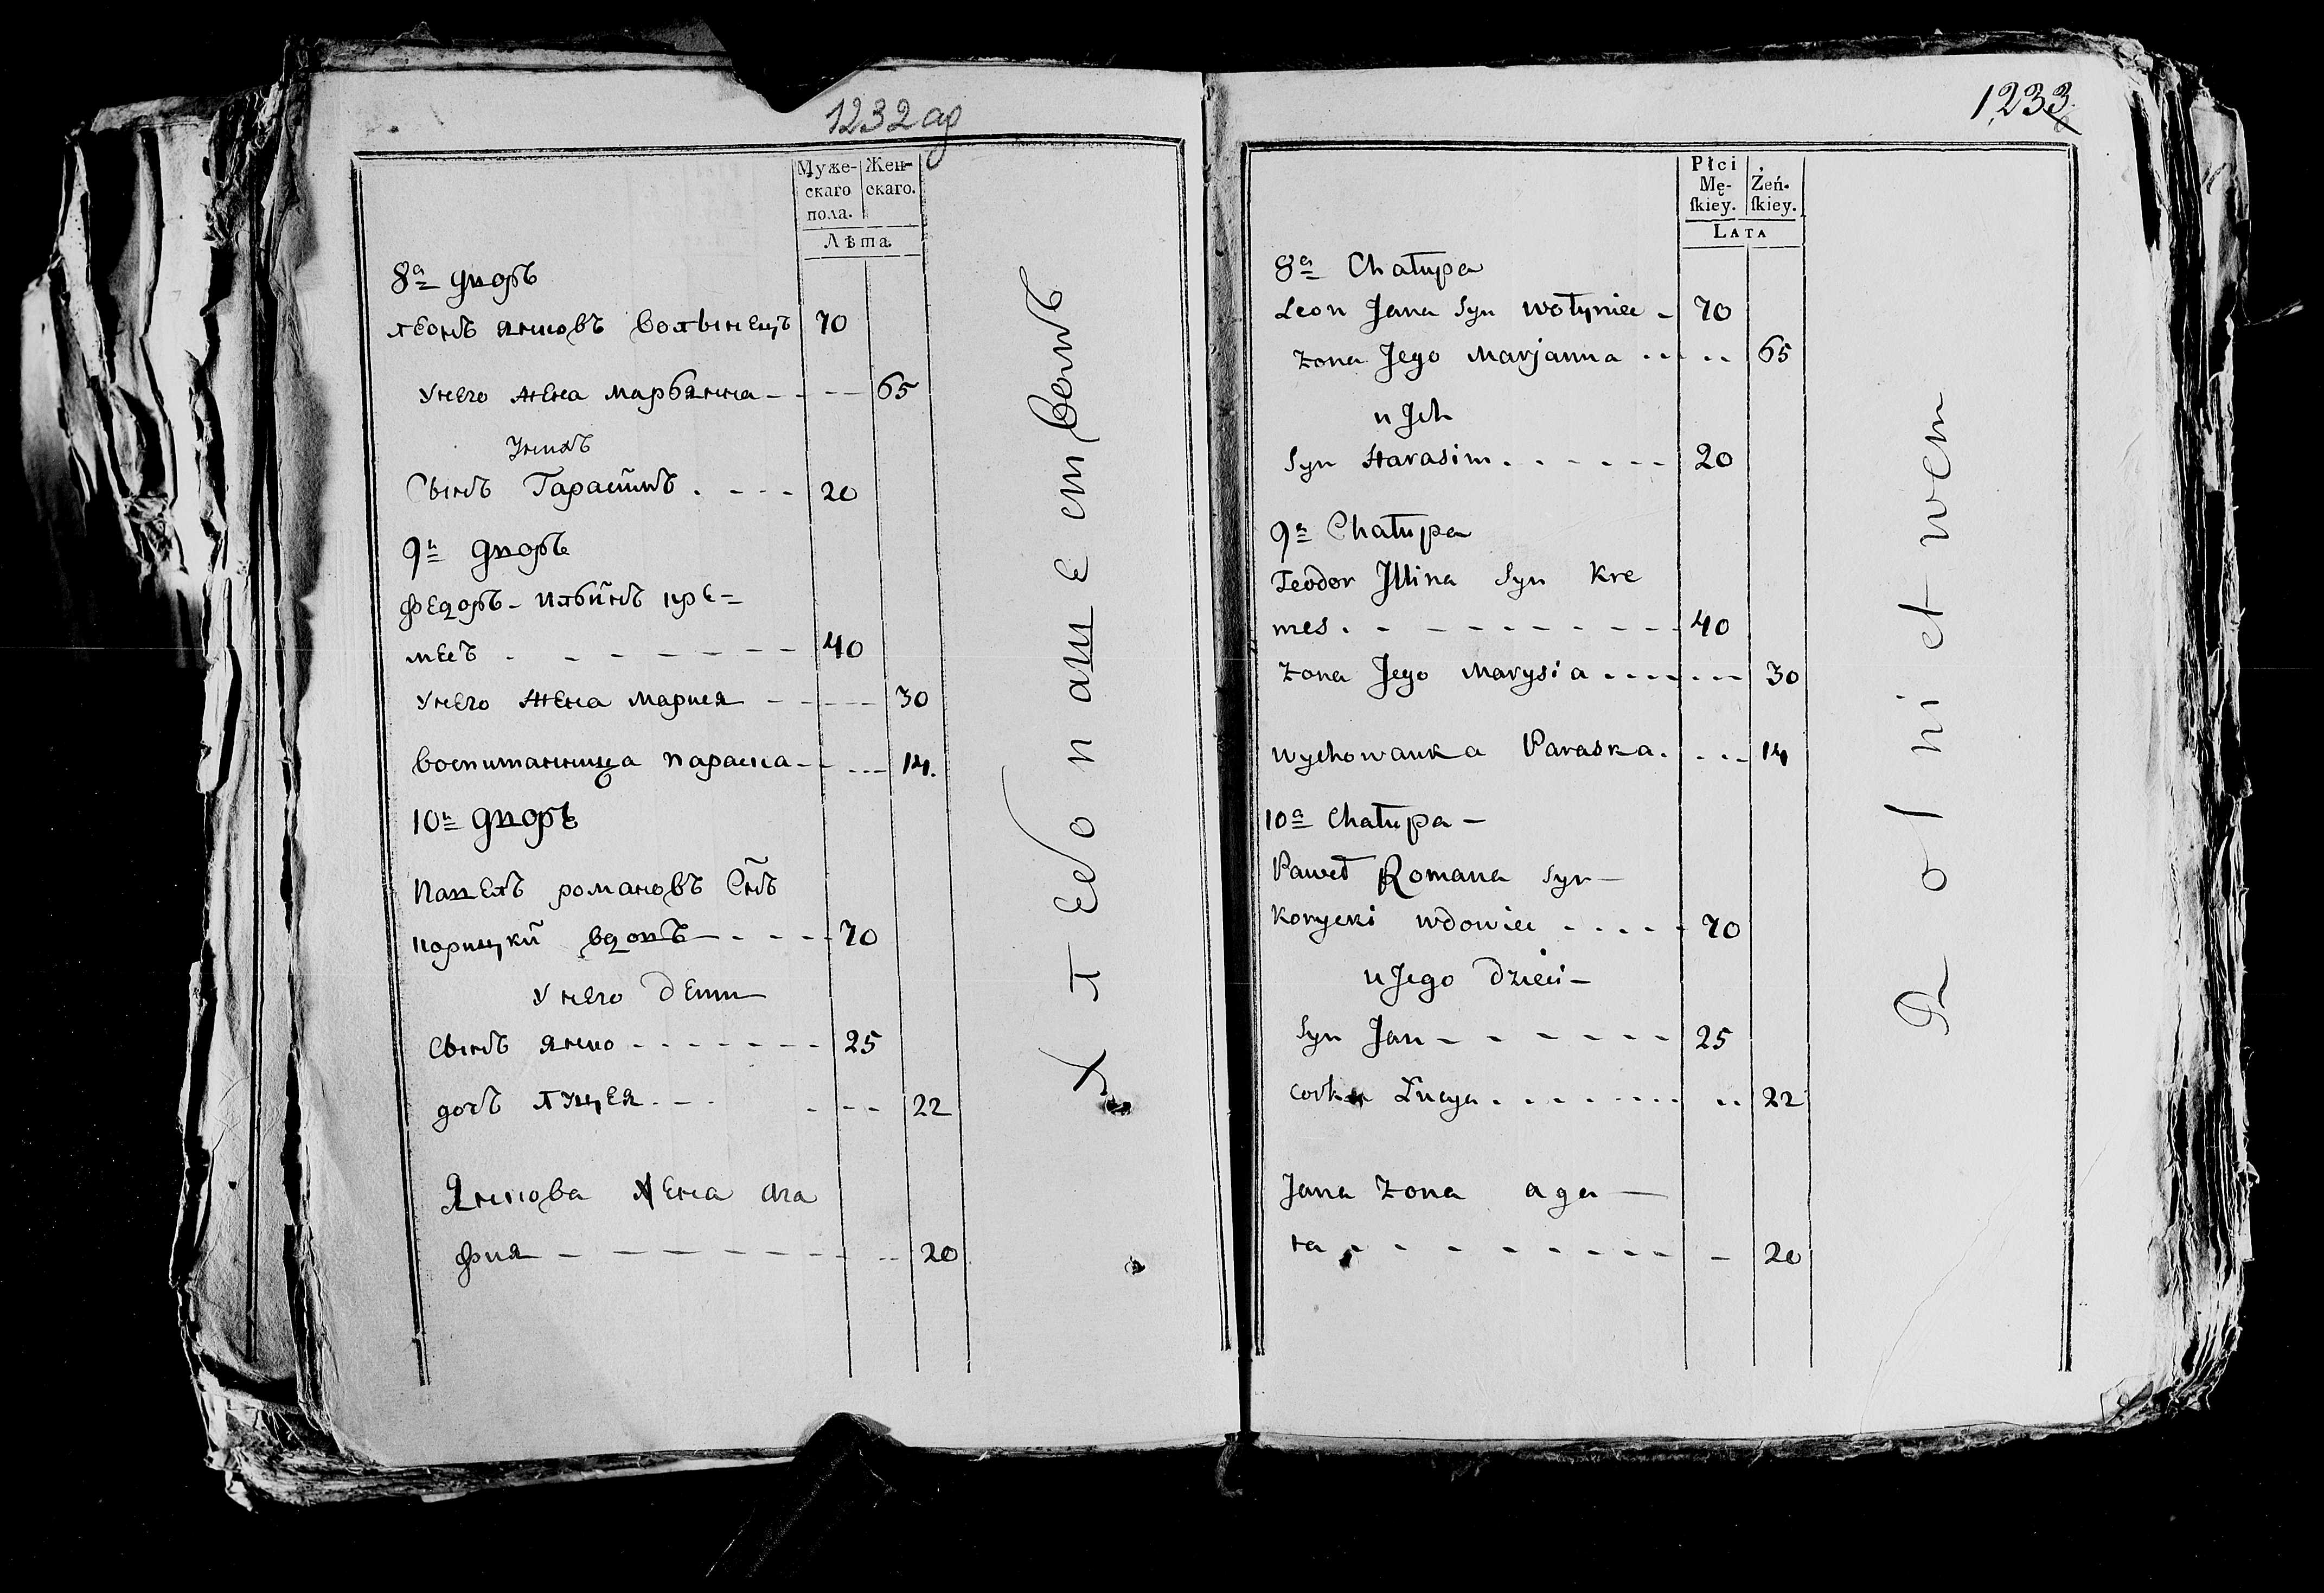 1232 об
Муже-
скаго
пола.
Жен-
скаго.
Лѣта
8й дворъ
леонъ янковъ волынецъ 70
У него жена марьянна 65
У нихъ
Сынъ Гарасимъ 20
9й дворъ
федоръ ильинъ кре=
месъ 40
У него жена мария 30
воспитанница параска 14
10й дворъ
павелъ романовъ Снъ
корицкий вдовъ 70
У него дети
Сынъ янко 25
дочь луцея 22
Янкова жена ага
фия 20
Хлебопашествомъ
1233
Płci
Mę-
ſkiey.
Żeń-
ſkiey.
LATA
8a Chałupa
Leon Jana Syn wołyniec 70
Zona Jego Marjanna 65
u Jch
Syn Harasim 20
9a Chałupa
Teodor Jllina Syn Kre
mes 40
Zona Jego Marysia 30
Wychowanka Paraska 14
10a Chałupa
Paweł Romana Syn
Korycki wdowiec 70
u Jego dzieci
Syn Jan 25
corka Łucya 22
Jana Zona aga
ta 20
Rolnictwem